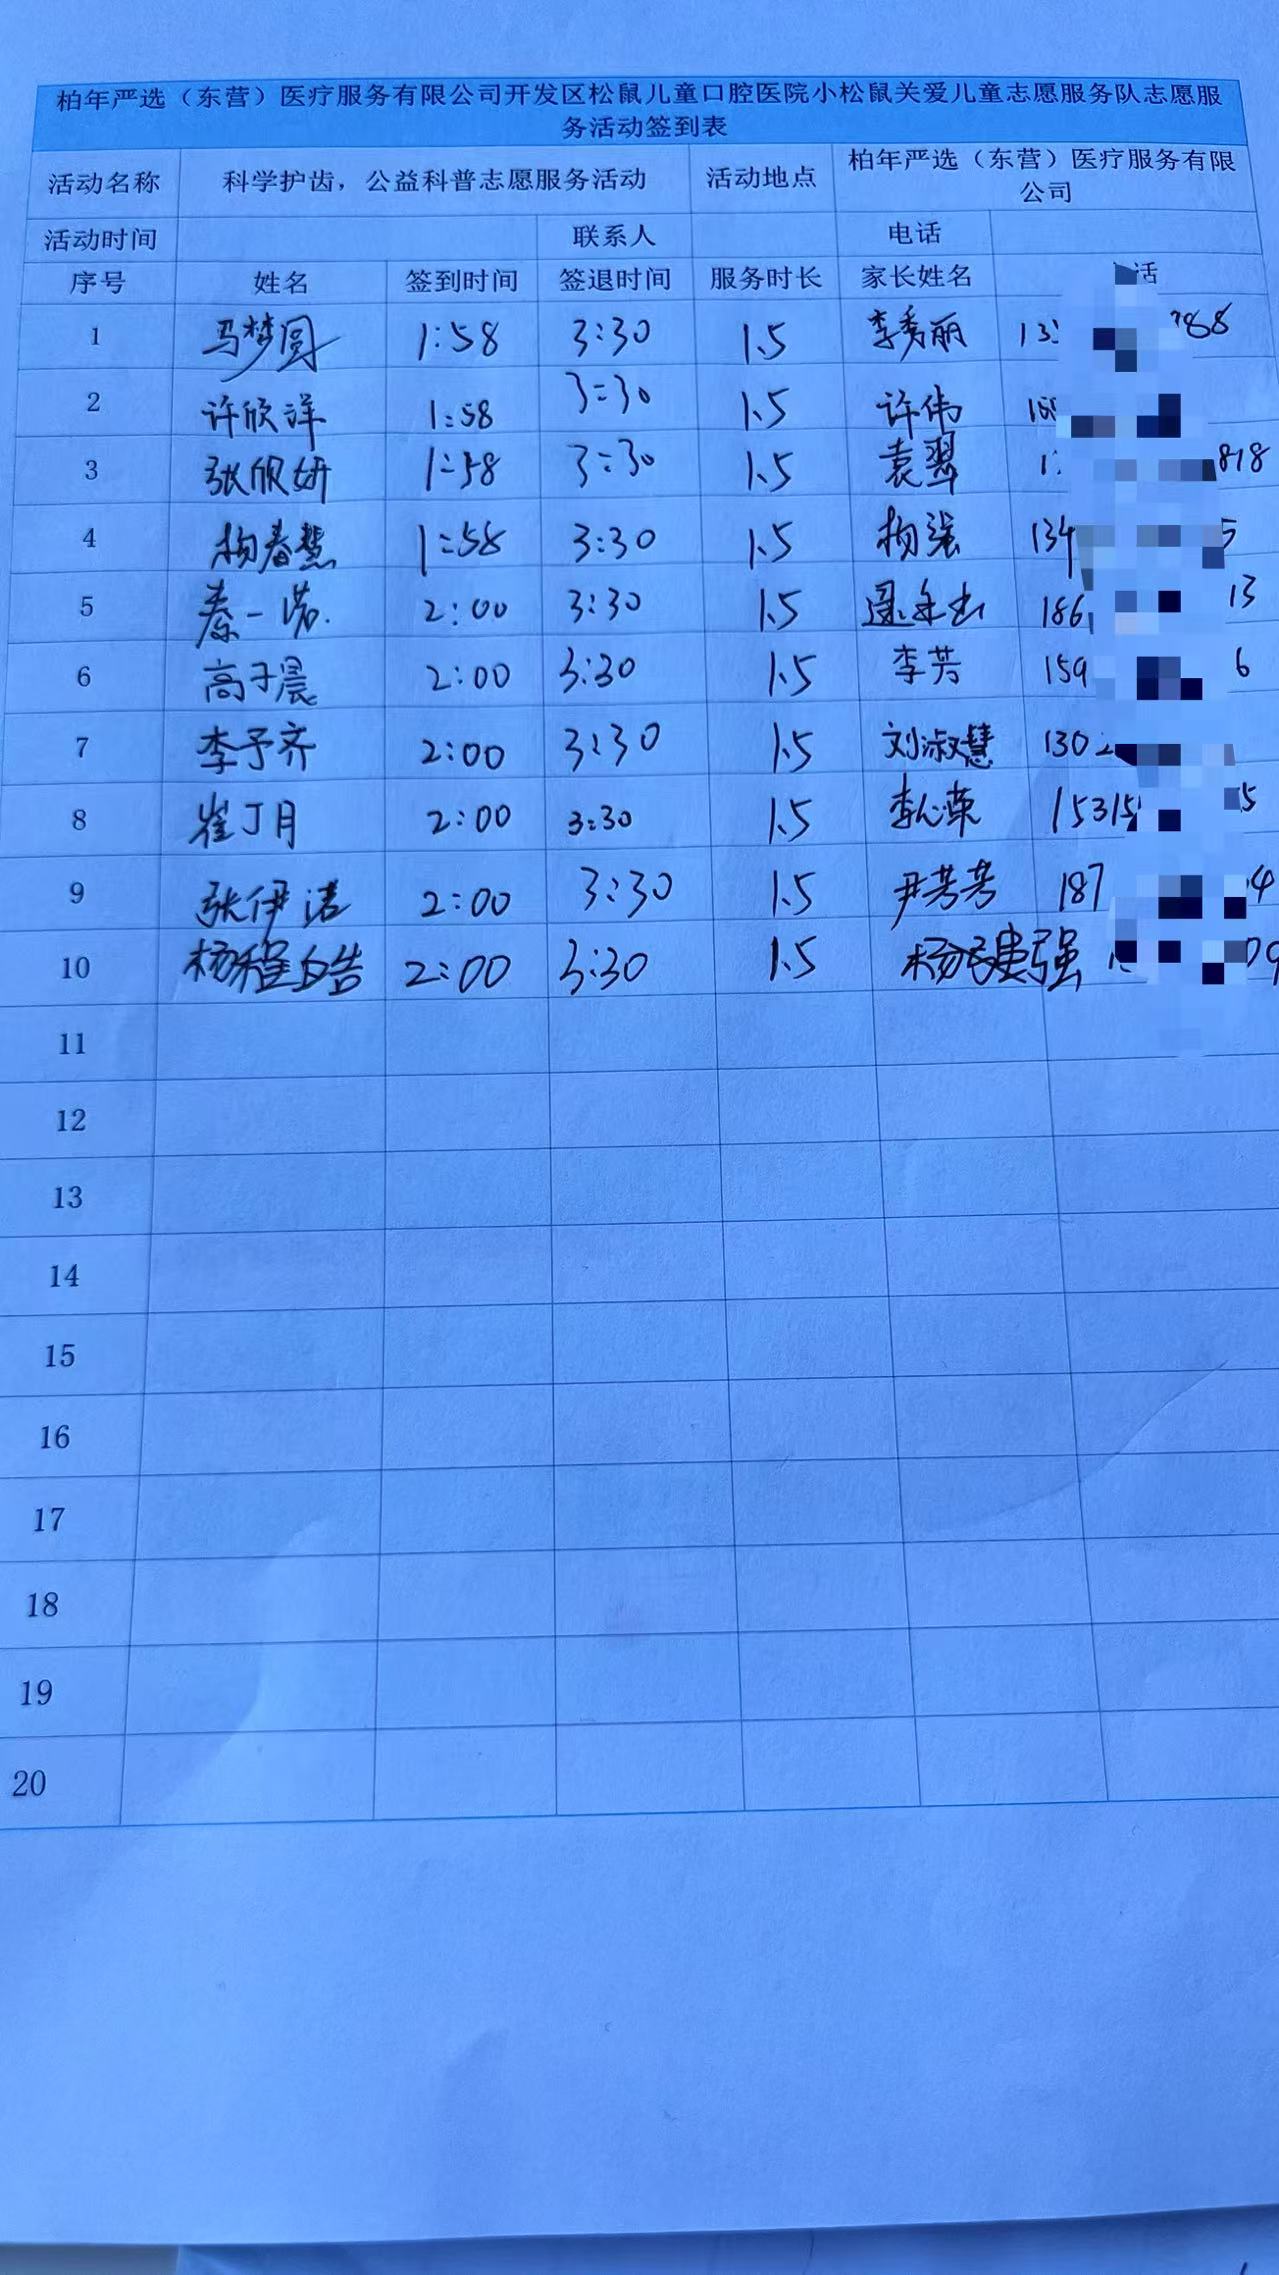 柏年严选（东营）医疗服务有限公司开发区松鼠儿童口腔医院小松鼠关爱儿童志愿服务队志愿服
务活动签到表
活动名称 科学护齿，公益科普志愿服务活动 活动地点 柏年严选（东营）医疗服务有限
公司
活动时间 联系人 电话
序号 姓名 签到时间 签退时间 服务时长 家长姓名 话
1 马梦圆 1:58 3:30 1.5 李秀丽
2 许欣洋 1:58 3:30 1.5 许伟
3 张欣妍 1:58 3:30 1.5 袁翠 818
4 杨春慧 1:58 3:30 1.5 杨强 134
5 秦一诺 2:00 3:30 1.5 186 13
6 高子晨 2:00 3:30 1.5 李芳 159 6
7 李予齐 2:00 3:30 1.5 刘淑慧 130
8 崔丁月 2:00 3:30 1.5 1531 5
9 张伊洁 2:00 3:30 1.5 尹芳芳 187 4
10 2:00 3:30 1.5
11
12
13
14
15
16
17
18
19
20